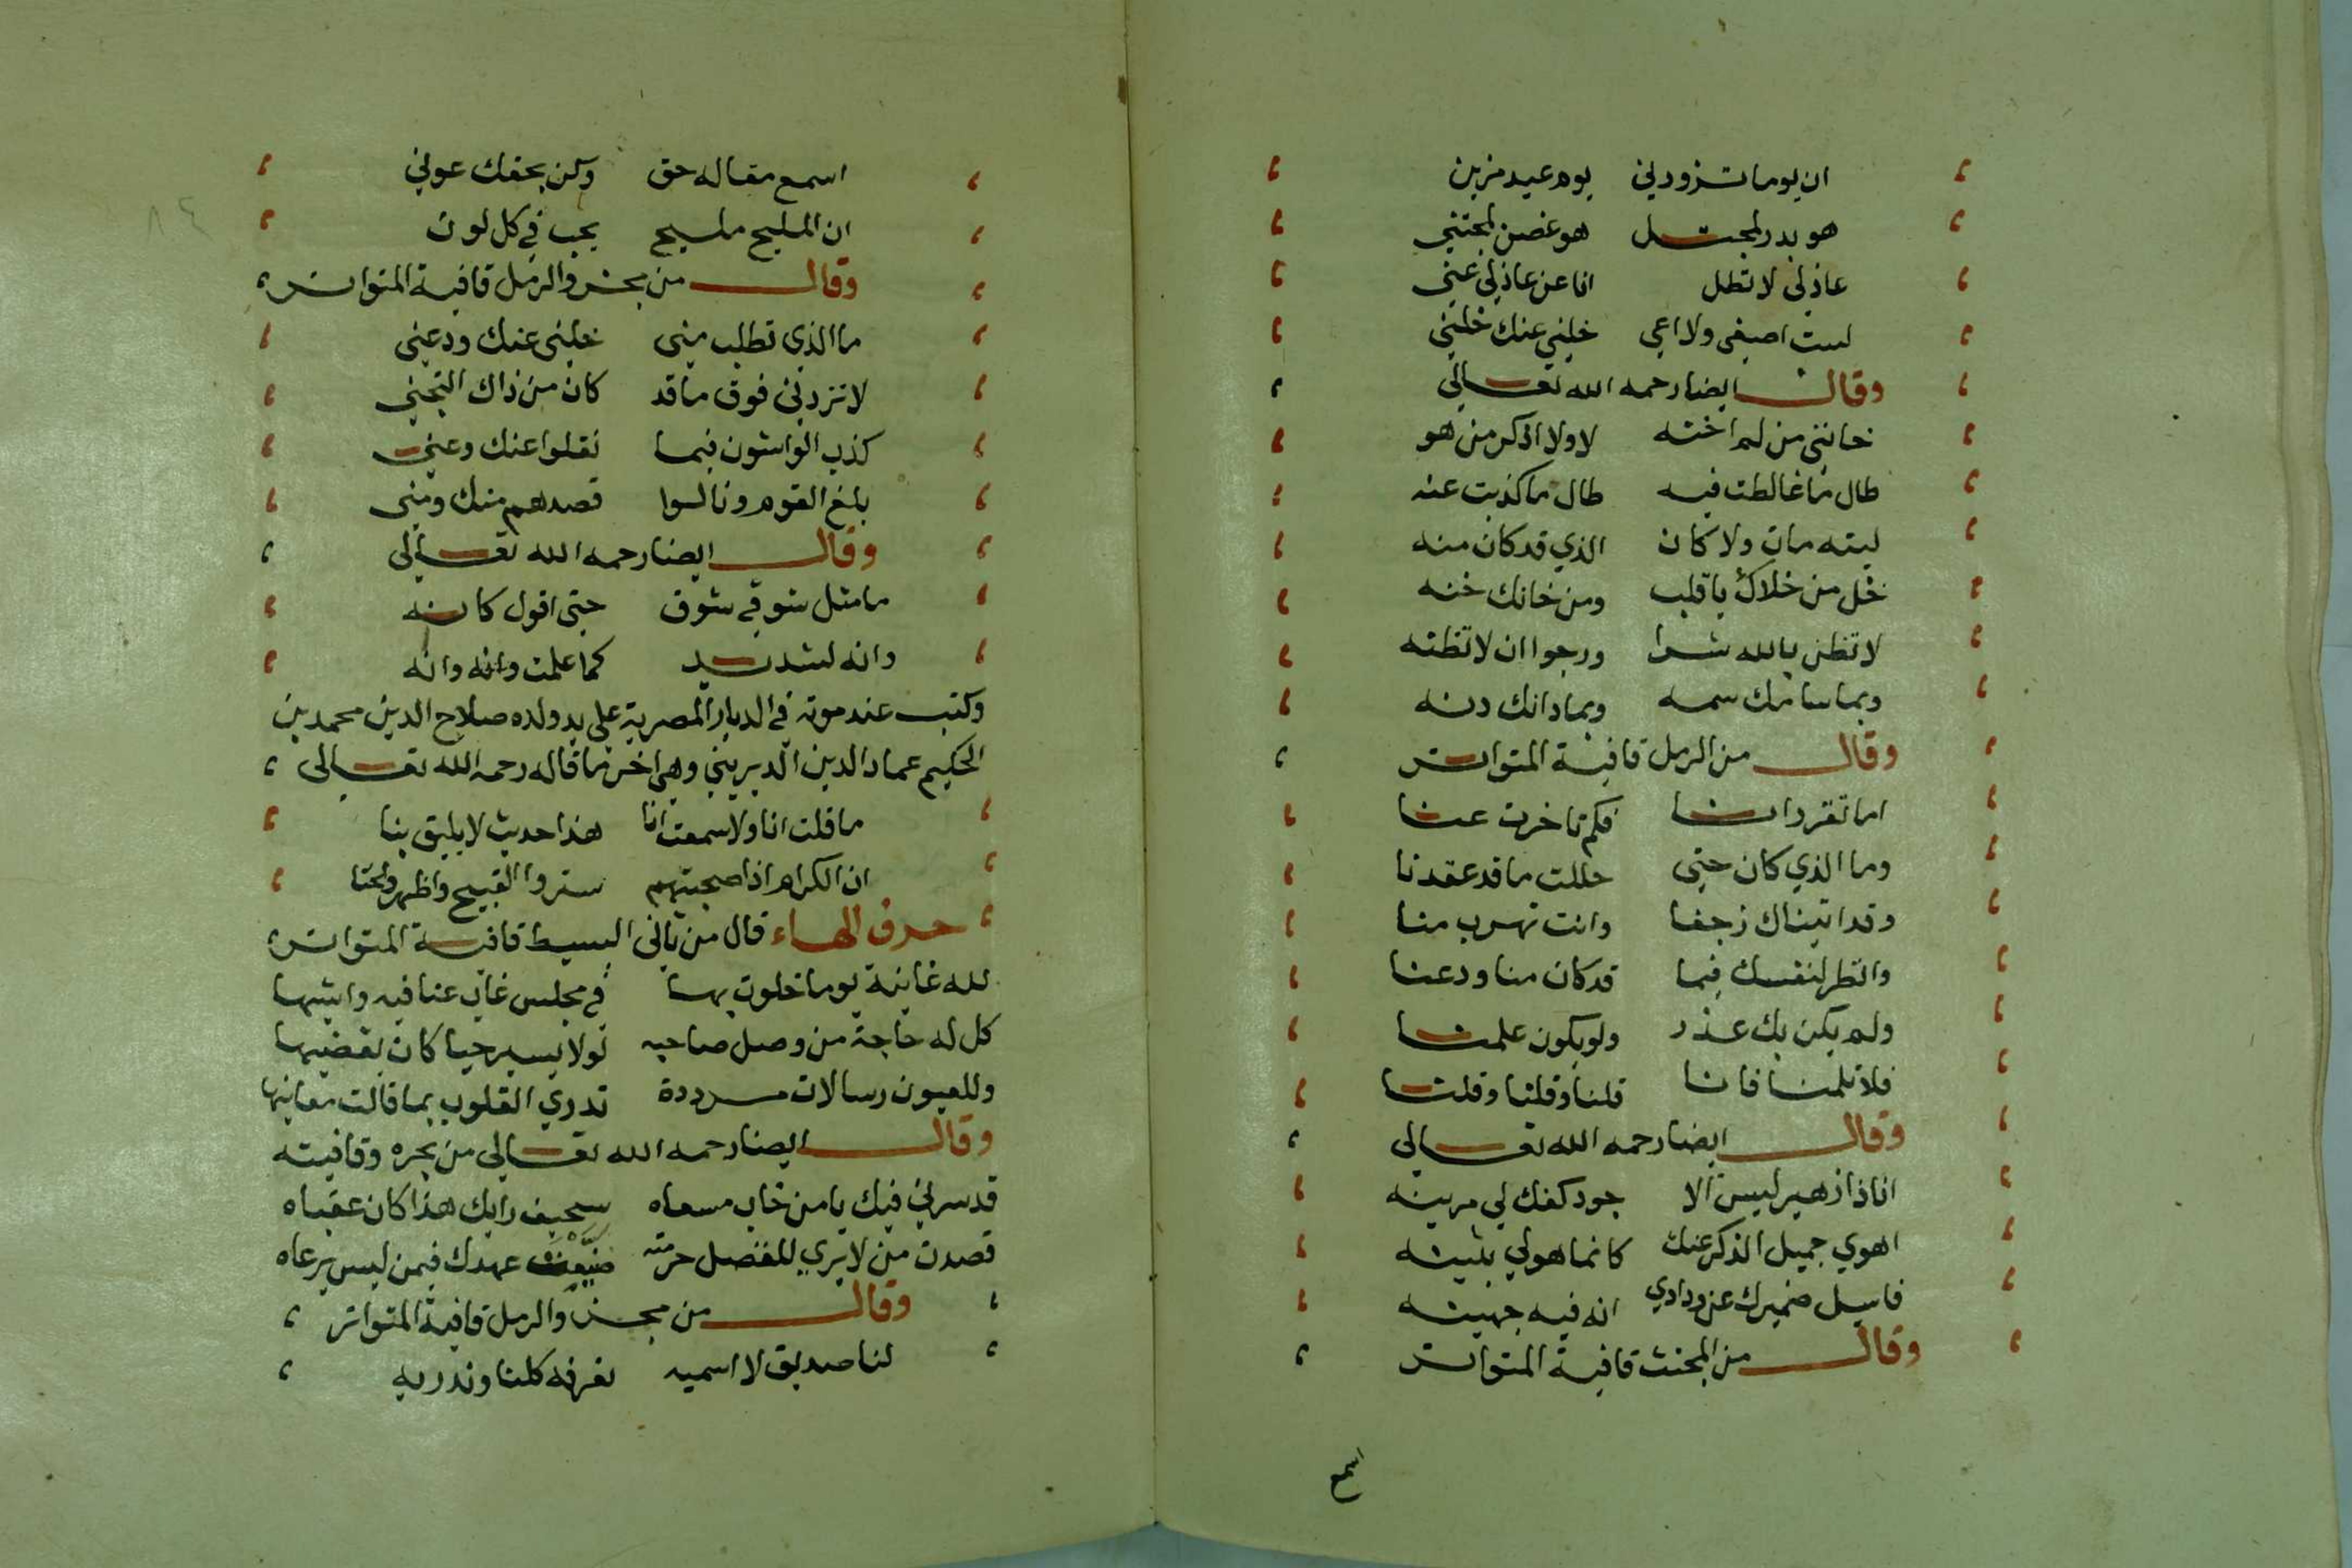 ان يوما تزورني يوم عيد مزين
هو بدر لمجتل هو غصن لمجتني
عاذلي لا تطل انا عن عاذلي غني
لست اصغي ولا اعي خلني عنك خلني
وقال ايضا رحمه الله تعالى
خانني من لم اخنه لا ولا اذكر من هو
طال ما غالطت فيه طال ما كذبت عنه
ليته مات ولا كان الذي قد كان منه
خل من خلاك يا قلب ومن خانك خنه
لا تظن بالله شرا ورجوا ان لا تظنه
وبما سامك سمه وبما دانك دنه
وقال من الرمل قافية المتواتر
اما تقرر انا فكم تاخرت عنا
وما الذي كان حتى حللت ما قد عقدنا
وقد اتيناك زحفا وانت تهرب منا
وانظر لنفسك فيما قد كان منا ودعنا
ولم يكن بك عذر ولو يكون علمنا
فلا تلمنا فانا قلنا وقلنا وقلنا
وقال ايضا رحمه الله تعالى
انا ذا زهير ليس الا جود كفك لي مزينه
اهوي جميل الذكر عنك كانما هو لي بثينه
فاسيل ضميرك عن ودادي انه فيه جهينه
وقال من المجتث قافية المتواتر
اسمع
اسمع مقاله حق وكن بحقك عوني
ان المليح مليح يحب في كل لون
وقال من مجزو الرمل قافية المتواتر
ما الذي تطلب مني خلني عنك ودعني
لا تزدني فوق ما قد كان من ذاك التجني
كذب الواشون فيما نقلوا عنك وعني
بلغ القوم ونالوا قصدهم منك ومني
وقال ايضا رحمه الله تعالى
ما مثل شوقي شوق حتى اقول كانه
وانه لشديد كما علمت وانه وانه
وكتب عند موته في الديار المصرية على يد ولده صلاح الدين محمد بن
الحكيم عماد الدين الديريني وهي اخر ما قاله رحمه الله تعالى
ما قلت انا ولا سمعت انا هذا حديث لا يليق بنا
ان الكرام اذا صحبتهم ستروا القبيح واظهروا الحسنا
حرف الهاء قال من ثاني البسيط قافية المتواتر
لله غانية يوما خلوت بها في مجلس غاب عنا فيه واشيها
كل له حاجة من وصل صاحبه لولا يسير حيا كان يقضيها
وللعيون رسالات مرددة تدري القلوب بما قالت معانيها
وقال ايضا رحمه الله تعالى من بحره وقافيته
قد سرني فيك يا من خاب مسعاه سخيف رايك هذا كان عقباه
قصدت من لا يري للفضل حرمته ضيعت عهدك فيمن ليس يرعاه
وقال من مجزو الرمل قافية المتواتر
لنا صديق لا اسميه نعرفه كلنا وندريه